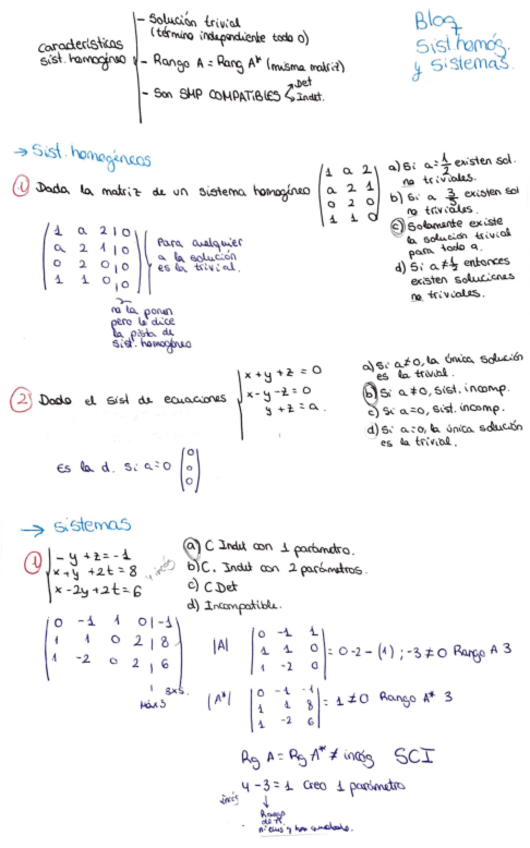 Bloq
Sist. homóg.
y sistemas.
características
sist. homogéneo
- Solución trivial
(término independiente todo 0)
- Rango A = Rang A* (misma matriz)
- Son SMP COMPATIBLES Det
Indet.
→ Sist. homogéneos
① Dada la matriz de un sistema homogéneo
1 a 2
a 2 1
0 2 0
1 1 0
a) Si a=1/2 existen sol.
no triviales.
b) Si a 3/5 existen sol
no triviales.
c) Solamente existe
la solución trivial
para todo a.
d) Si a≠1/2 entonces
existen soluciones
no triviales.
1 a 2 | 0
a 2 1 | 0
0 2 0 | 0
1 1 0 | 0
Para cualquier
a la solución
es la trivial.
no la ponen
pero te dice
la pista de
sist. homogéneo
② Dado el sist de ecuaciones
x+y+z=0
x-y-z=0
y+z=a.
a) Si a≠0, la única solución
es la trivial.
b) Si a≠0, sist. incomp.
c) Si a=0, sist. incomp.
d) Si a=0, la única solución
es la trivial.
Es la d. Si a=0
0
0
0
→ sistemas
①
-y+z=-1
x+y+2t=8
x-2y+2t=6
4 incóg
a) C Indet con 1 parámetro.
b) C. Indet con 2 parámetros.
c) C Det
d) Incompatible.
0 -1 1 0 | -1
1 1 0 2 | 8
1 -2 0 2 | 6
3x5
Máx 3
|A|
0 -1 1
1 1 0
1 -2 0
= 0-2-(1); -3≠0 Rango A 3
|A*|
0 -1 -1
1 1 8
1 -2 6
= 1≠0 Rango A* 3
Rg A = Rg A* ≠ incóg SCI
4-3=1 Creo 1 parámetro
incóg
Rango
de A.